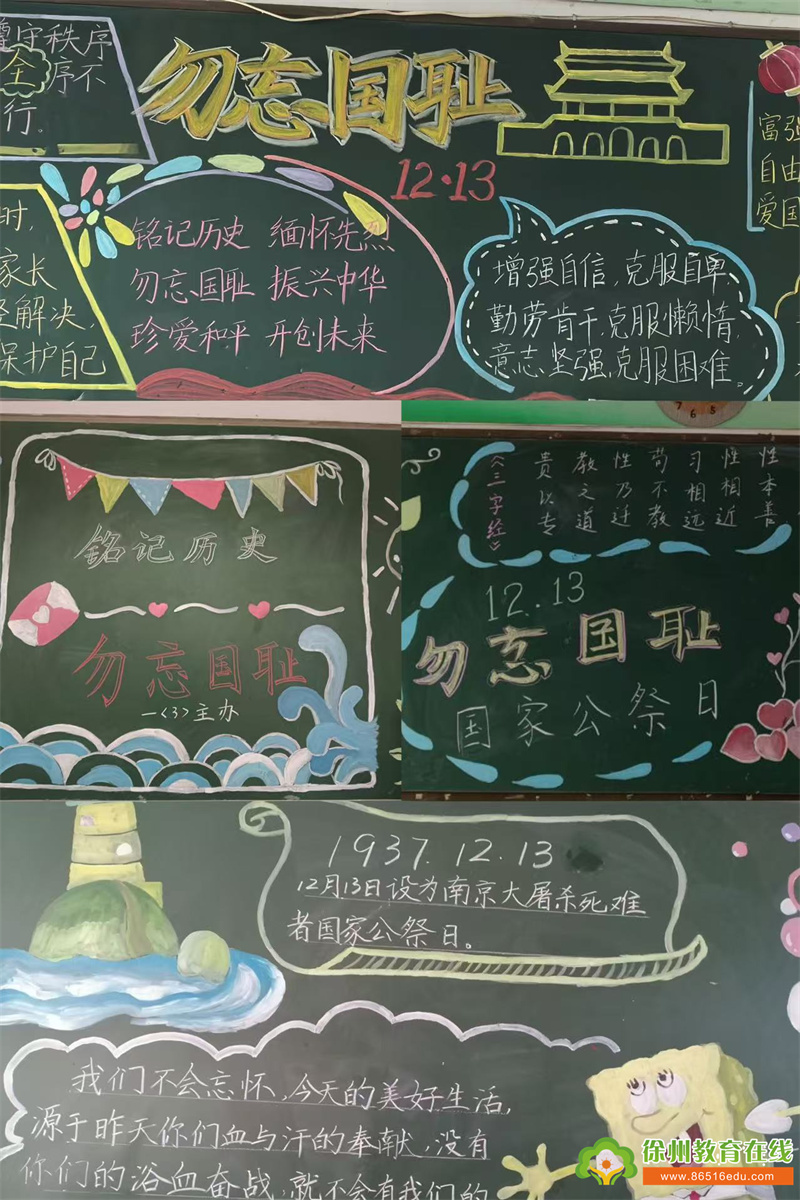 遵守秩序
全 序不
行。
勿忘国耻
12·13
富强
自由
爱国
时,
家长
解决,
保护自己
铭记历史 缅怀先烈
勿忘国耻 振兴中华
珍爱和平 开创未来
增强自信,克服自卑
勤劳肯干,克服懒惰
意志坚强,克服困难。
铭记历史
勿忘国耻
一<3>主办
7 6 5
性本善
性相近
习相远
苟不教
性乃迁
教之道
贵以专
《三字经》
12.13
勿忘国耻
国家公祭日
1937.12.13
12月13日设为南京大屠杀死难
者国家公祭日。
我们不会忘怀,今天的美好生活,
源于昨天你们血与汗的奉献,没有
你们的浴血奋战,就不会有我们的
徐州教育在线
www.86516edu.com